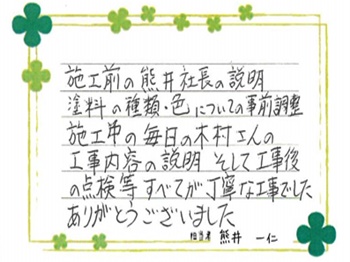 施工前の熊井社長の説明
塗料の種類・色についての事前調整
施工中の毎日の木村さんの
工事内容の説明 そして工事後
の点検等すべてが丁寧な工事でした
ありがとうございました
担当者 熊井 一仁